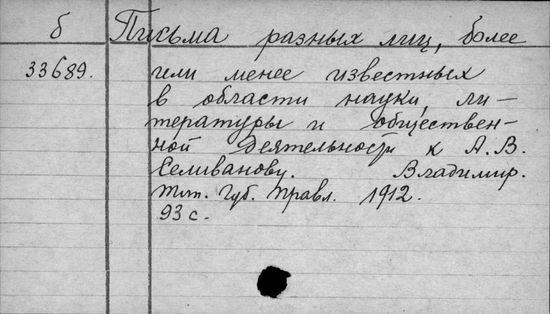 б Письма разных лиц, более
33689. или менее известных
в области науки, ли-
тературы и обществен-
ной деятельности к А.В.
Селиванову. Владимир.
тип. Губ. Правл. 1912.
93 с.